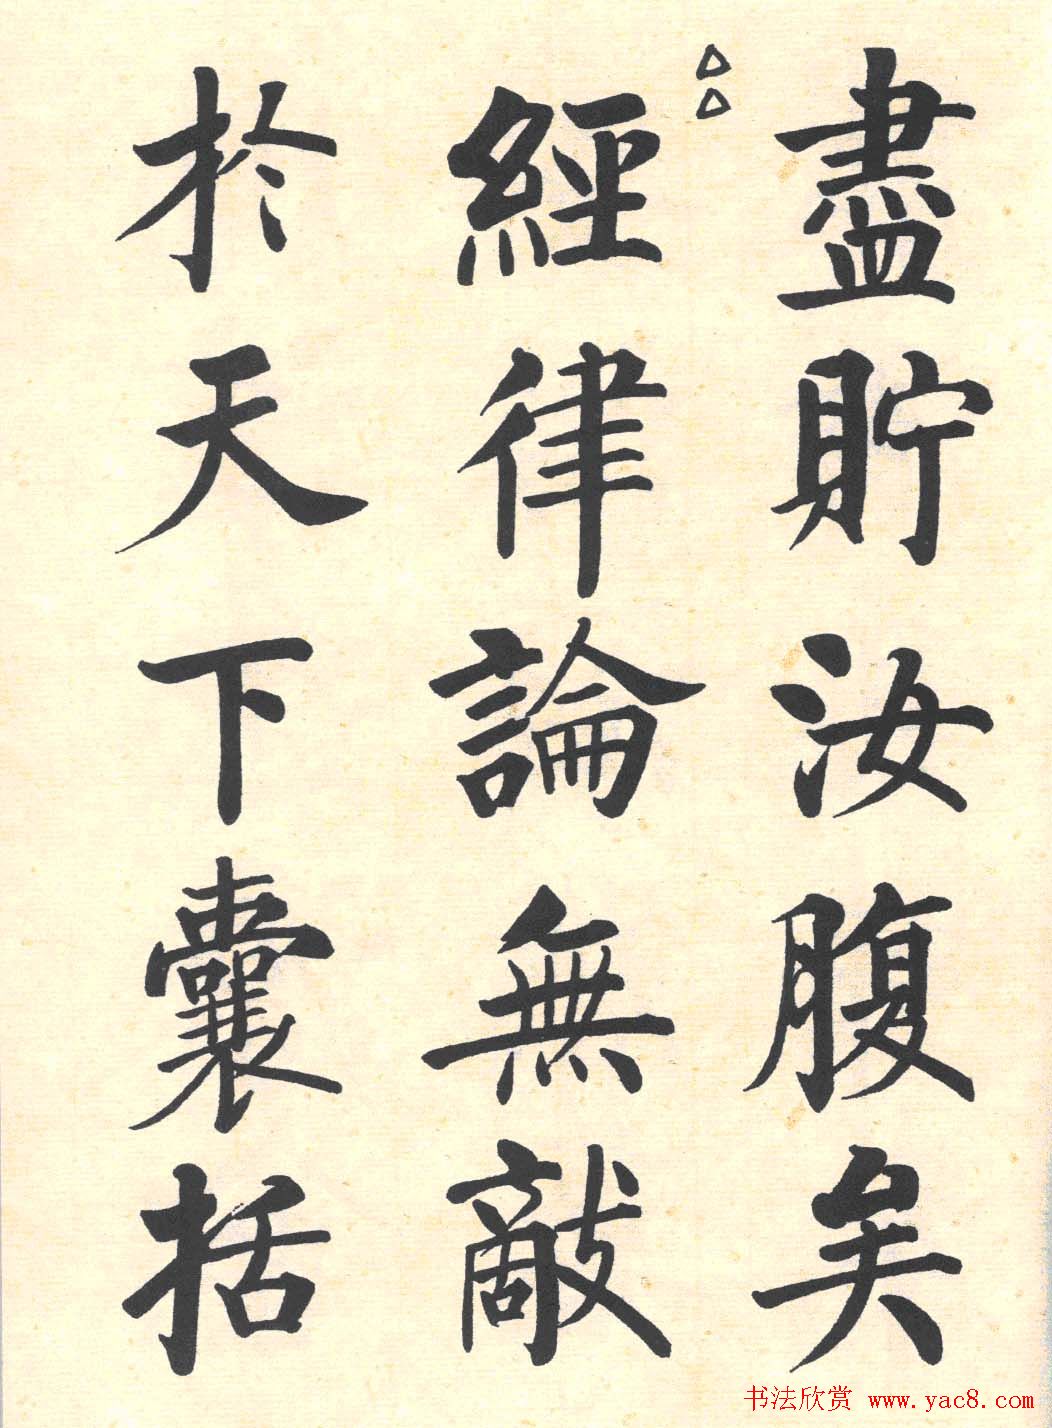 盡貯汝腹矣
經律論無敵
於天下囊括
书法欣赏 www.yac8.com